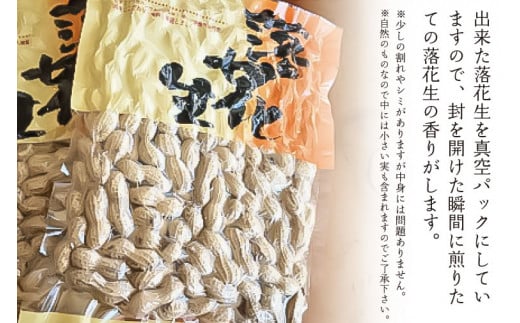 出来た落花生を真空パックにしてい
ますので、封を開けた瞬間に煎りた
ての落花生の香りがします。
※少しの割れやシミがありますが中身には問題ありません。
※自然のものなので中には小さい実も含まれますのでご了承下さい。
落花生